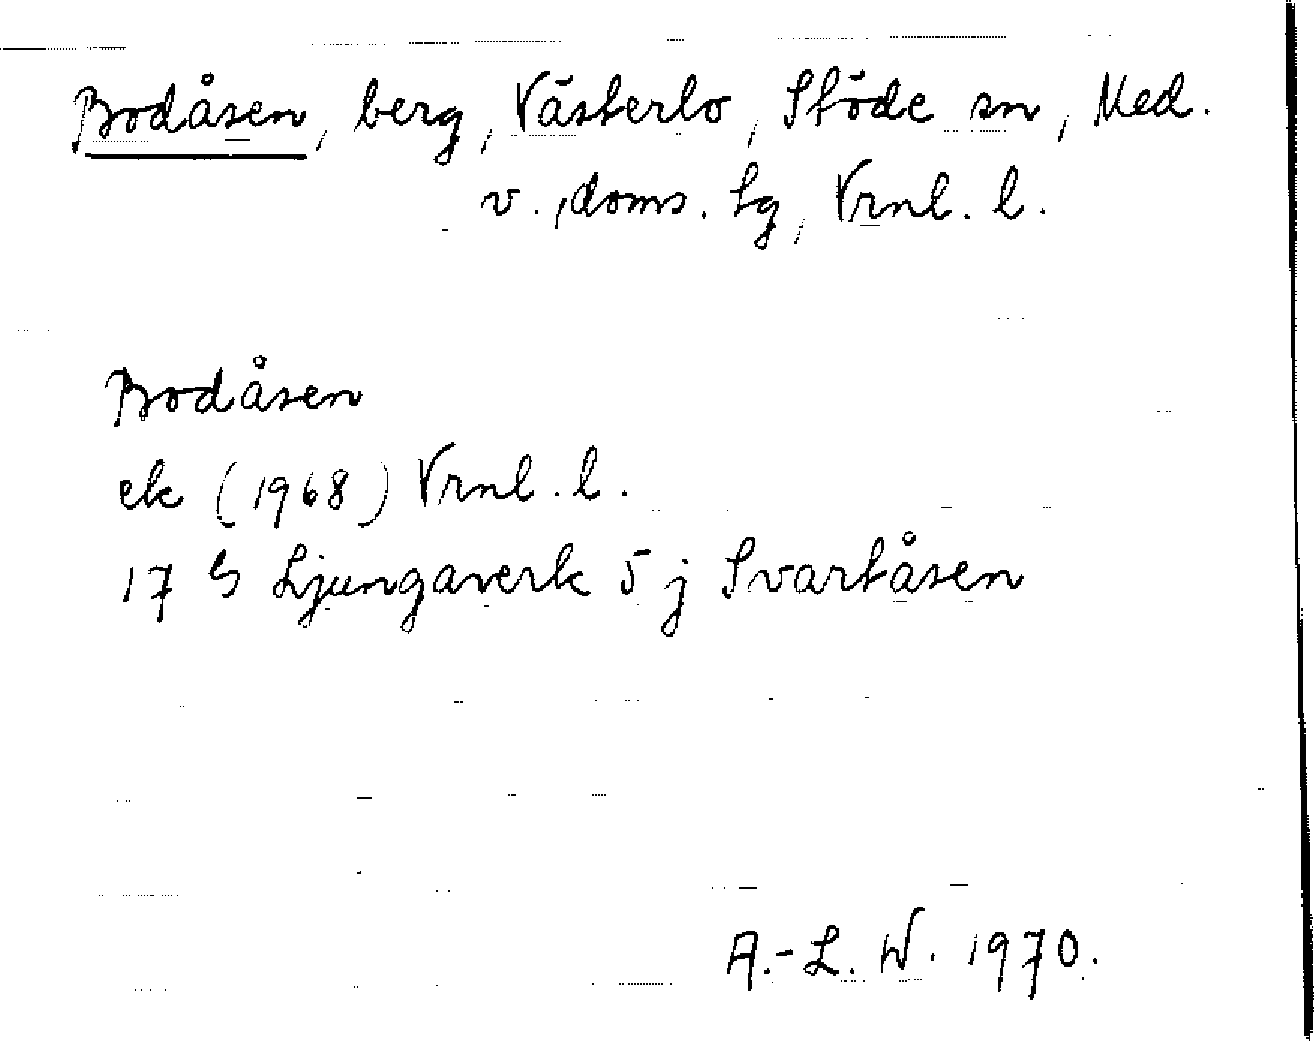 Bodåsen, berg, Västerlo, Stöde sn, Med.
v., doms. Lg, Vrnl. l.
Bodåsen
ek (1968) Vrnl. l.
17 G Ljungaverk 5 j Svartåsen
A.-L. W. 1970.